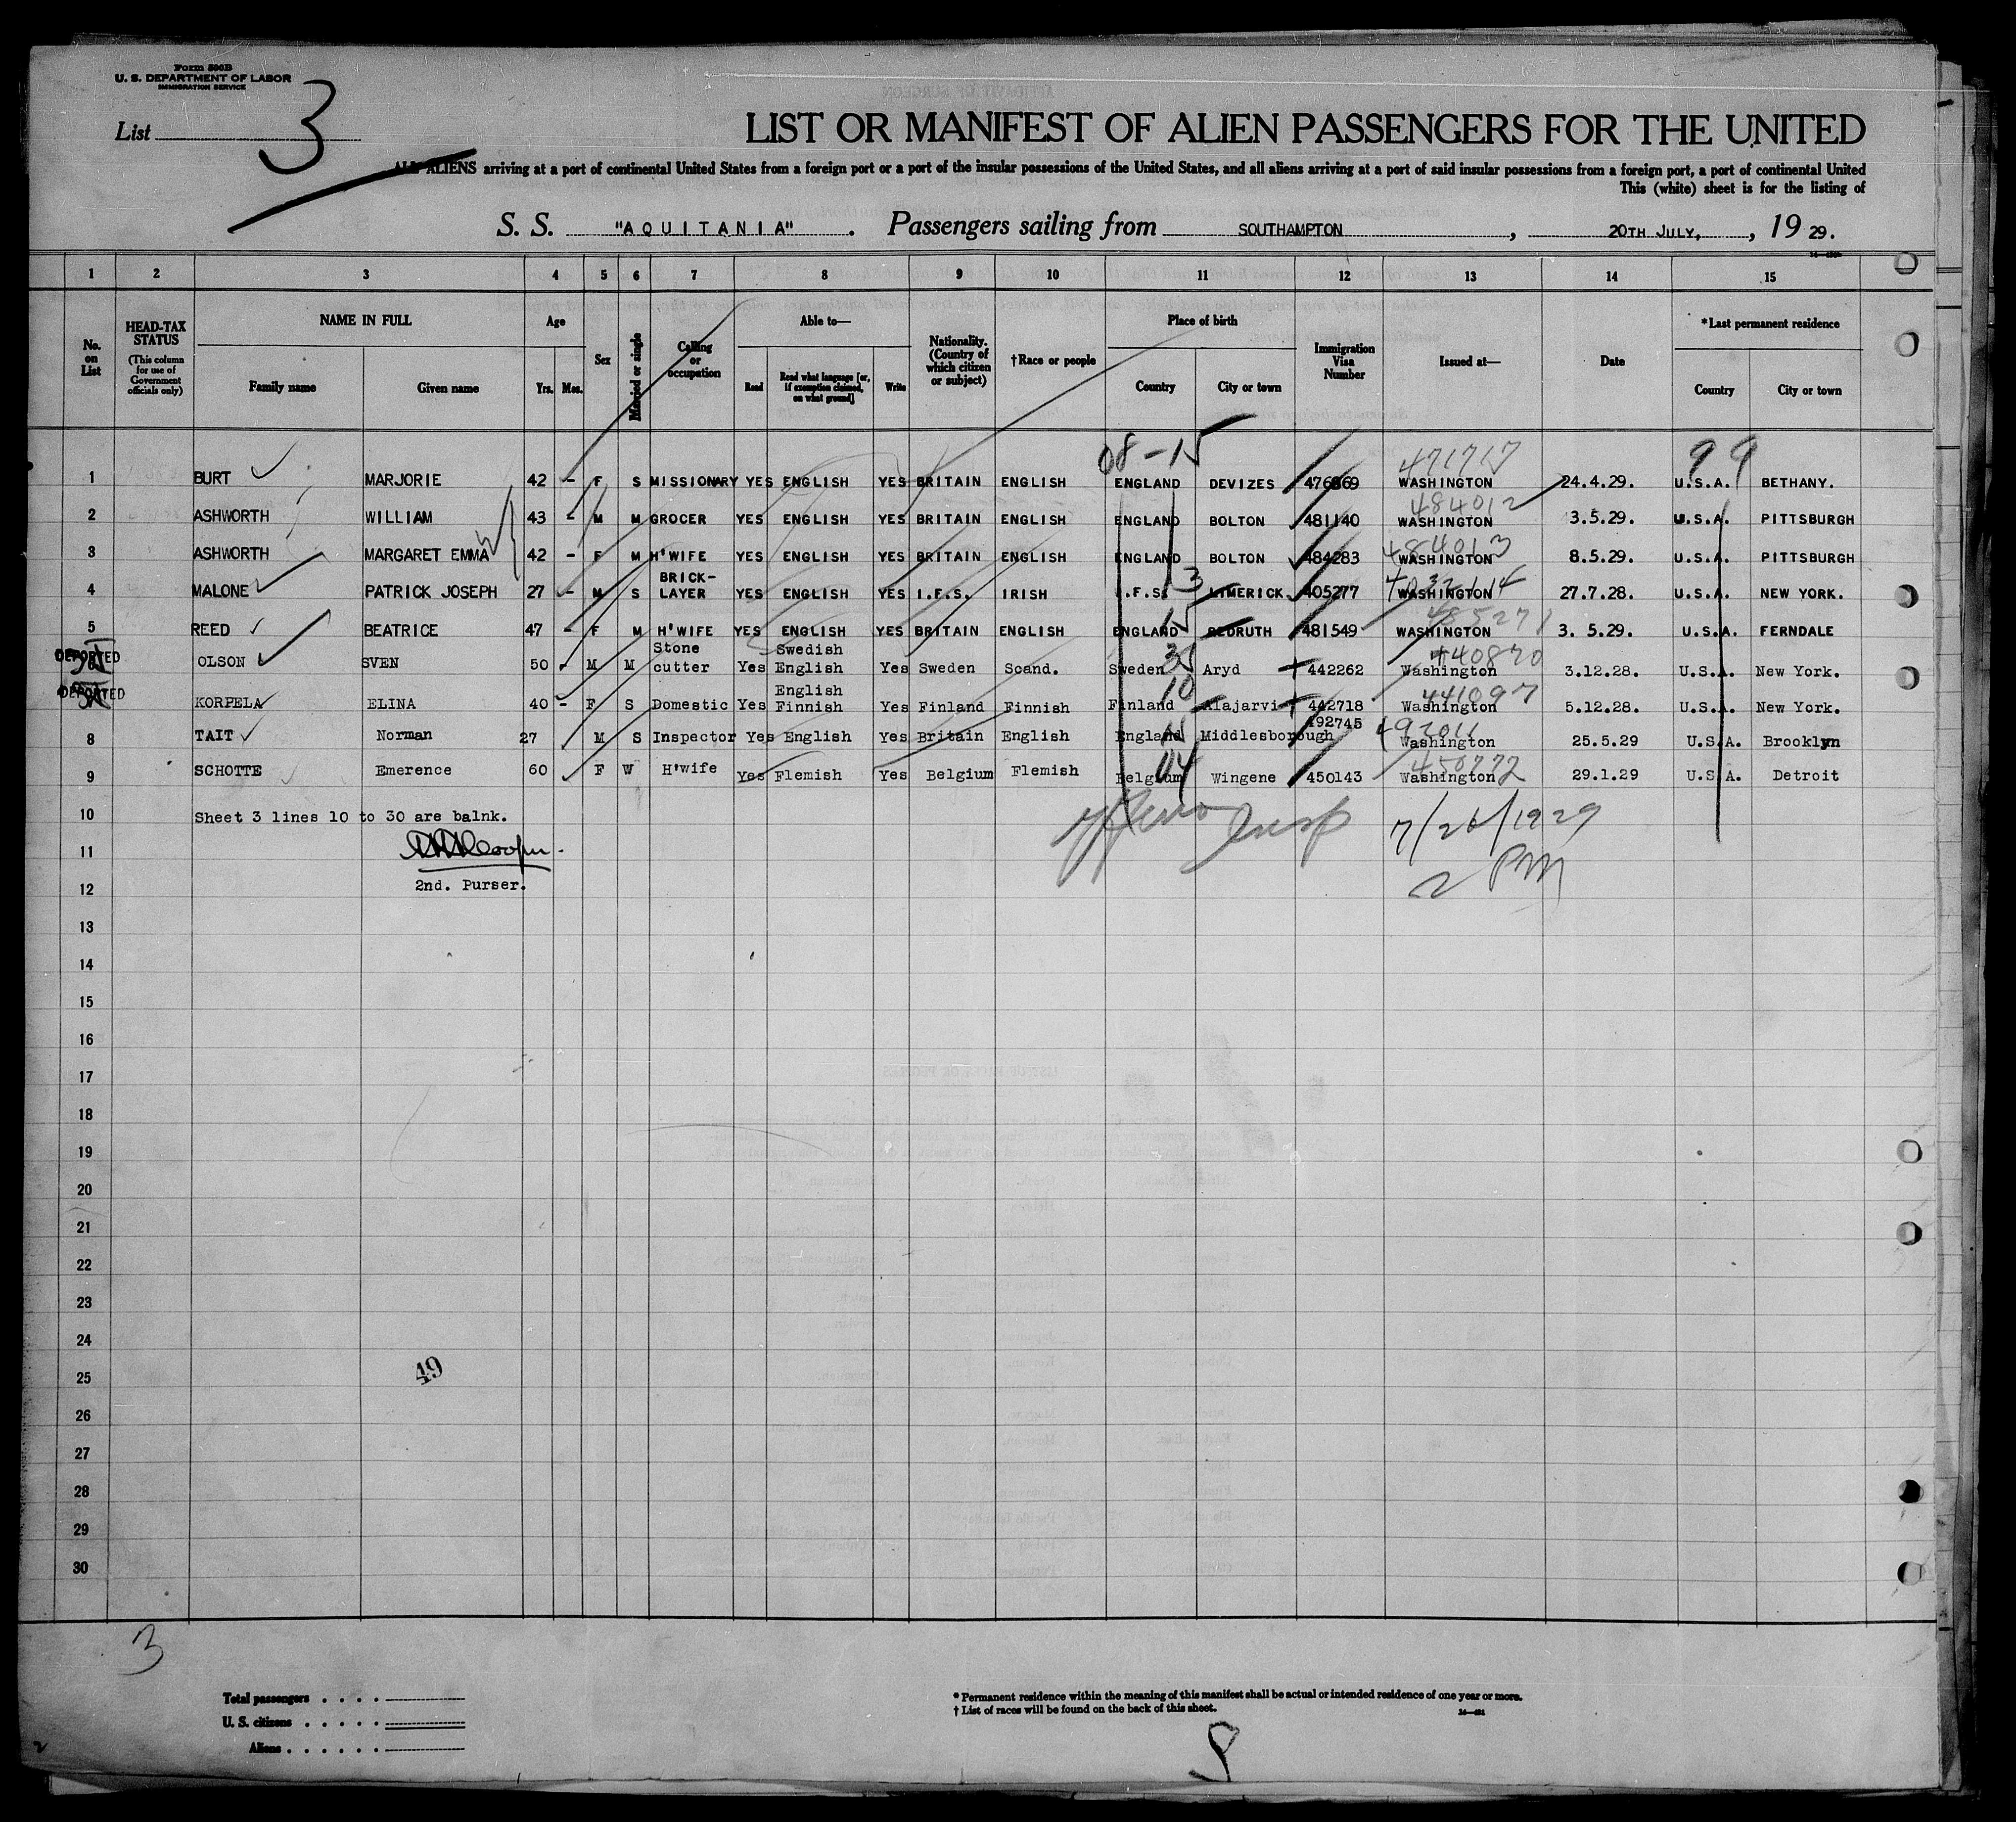 Form 500B
U. S. DEPARTMENT OF LABOR
IMMIGRATION SERVICE
List 3
LIST OR MANIFEST OF ALIEN PASSENGERS FOR THE UNITED
ALL ALIENS arriving at a port of continental United States from a foreign port or a port of the insular possessions of the United States, and all aliens arriving at a port of said insular possessions from a foreign port, a port of continental United
This (white) sheet is for the listing of
S. S. "AQUITANIA". Passengers sailing from SOUTHAMPTON, 20TH JULY, , 19 29.
1 2 3 4 5 6 7 8 9 10 11 12 13 14 15
No. on List
HEAD-TAX STATUS (This column for use of Government officials only)
NAME IN FULL
Family name
Given name
Age
Yrs. Mos.
Sex
Married or single
Calling or occupation
Able to—
Read
Read what language [or, if exemption claimed, on what ground]
Write
Nationality. (Country of which citizen or subject)
†Race or people
Place of birth
Country
City or town
Immigration Visa Number
Issued at—
Date
*Last permanent residence
Country
City or town
08-15 471717 99
1 BURT MARJORIE 42 - F S MISSIONARY YES ENGLISH YES BRITAIN ENGLISH ENGLAND DEVIZES WASHINGTON 24.4.29. U.S.A. BETHANY.
484012
2 ASHWORTH WILLIAM 43 - M M GROCER YES ENGLISH YES BRITAIN ENGLISH ENGLAND BOLTON 481140 WASHINGTON 3.5.29. U.S.A. PITTSBURGH
484013
3 ASHWORTH MARGARET EMMA 42 - F M H'WIFE YES ENGLISH YES BRITAIN ENGLISH ENGLAND BOLTON 484283 WASHINGTON 8.5.29. U.S.A. PITTSBURGH
4 MALONE PATRICK JOSEPH 27 - M S BRICK-LAYER YES ENGLISH YES I.F.S. IRISH I.F.S. 3 LIMERICK 405277 WASHINGTON 27.7.28. U.S.A. NEW YORK.
485271
5 REED BEATRICE 47 - F M H'WIFE YES ENGLISH YES BRITAIN ENGLISH ENGLAND 15 REDRUTH 481549 WASHINGTON 3. 5.29. U.S.A. FERNDALE
440870
DEPORTED OLSON SVEN 50 - M M Stone cutter Yes Swedish English Yes Sweden Scand. Sweden 35 Aryd 442262 Washington 3.12.28. U.S.A. New York.
441097
DEPORTED KORPELA ELINA 40 - F S Domestic Yes English Finnish Yes Finland Finnish Finland 10 Alajarvi 442718 Washington 5.12.28. U.S.A. New York.
492011
8 TAIT Norman 27 M S Inspector Yes English Yes Britain English England Middlesborough 492745 Washington 25.5.29 U.S.A. Brooklyn
450772
9 SCHOTTE Emerence 60 F W H'wife Yes Flemish Yes Belgium Flemish Belgium 04 Wingene 450143 Washington 29.1.29 U.S.A. Detroit
10 Sheet 3 lines 10 to 30 are balnk.
Insp 7/26/1929
2 PM
11
12 2nd. Purser.
13
14
15
16
17
18
19
20
21
22
23
24
25
49
26
27
28
29
30
3
Total passengers . . . .
U. S. citizens . . . . .
Aliens . . . . . .
* Permanent residence within the meaning of this manifest shall be actual or intended residence of one year or more.
† List of races will be found on the back of this sheet.